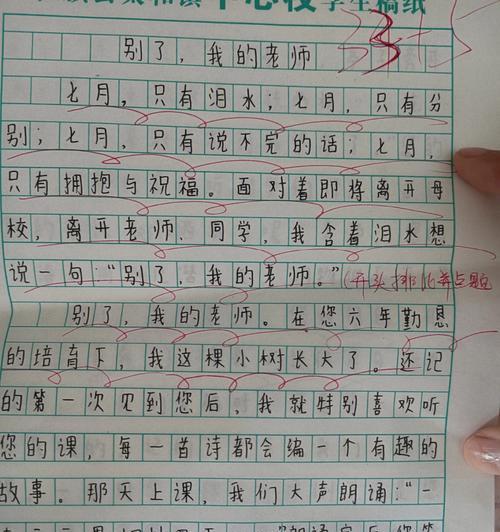 中心校学生稿纸
33+5
别了，我的老师
七月，只有泪水；七月，只有分
别；七月，只有说不完的话；七月，
只有拥抱与祝福。面对着即将离开母
校，离开老师、同学，我含着泪水想
说一句：“别了，我的老师。”(开头排比并点题
别了，我的老师。在您六年勤恳
的培育下，我这棵小树长大了。还记
的第一次见到您后，我就特别喜欢听
您的课，每一首诗都会编一个有趣的
故事。那天上课，我们大声朗诵：“一